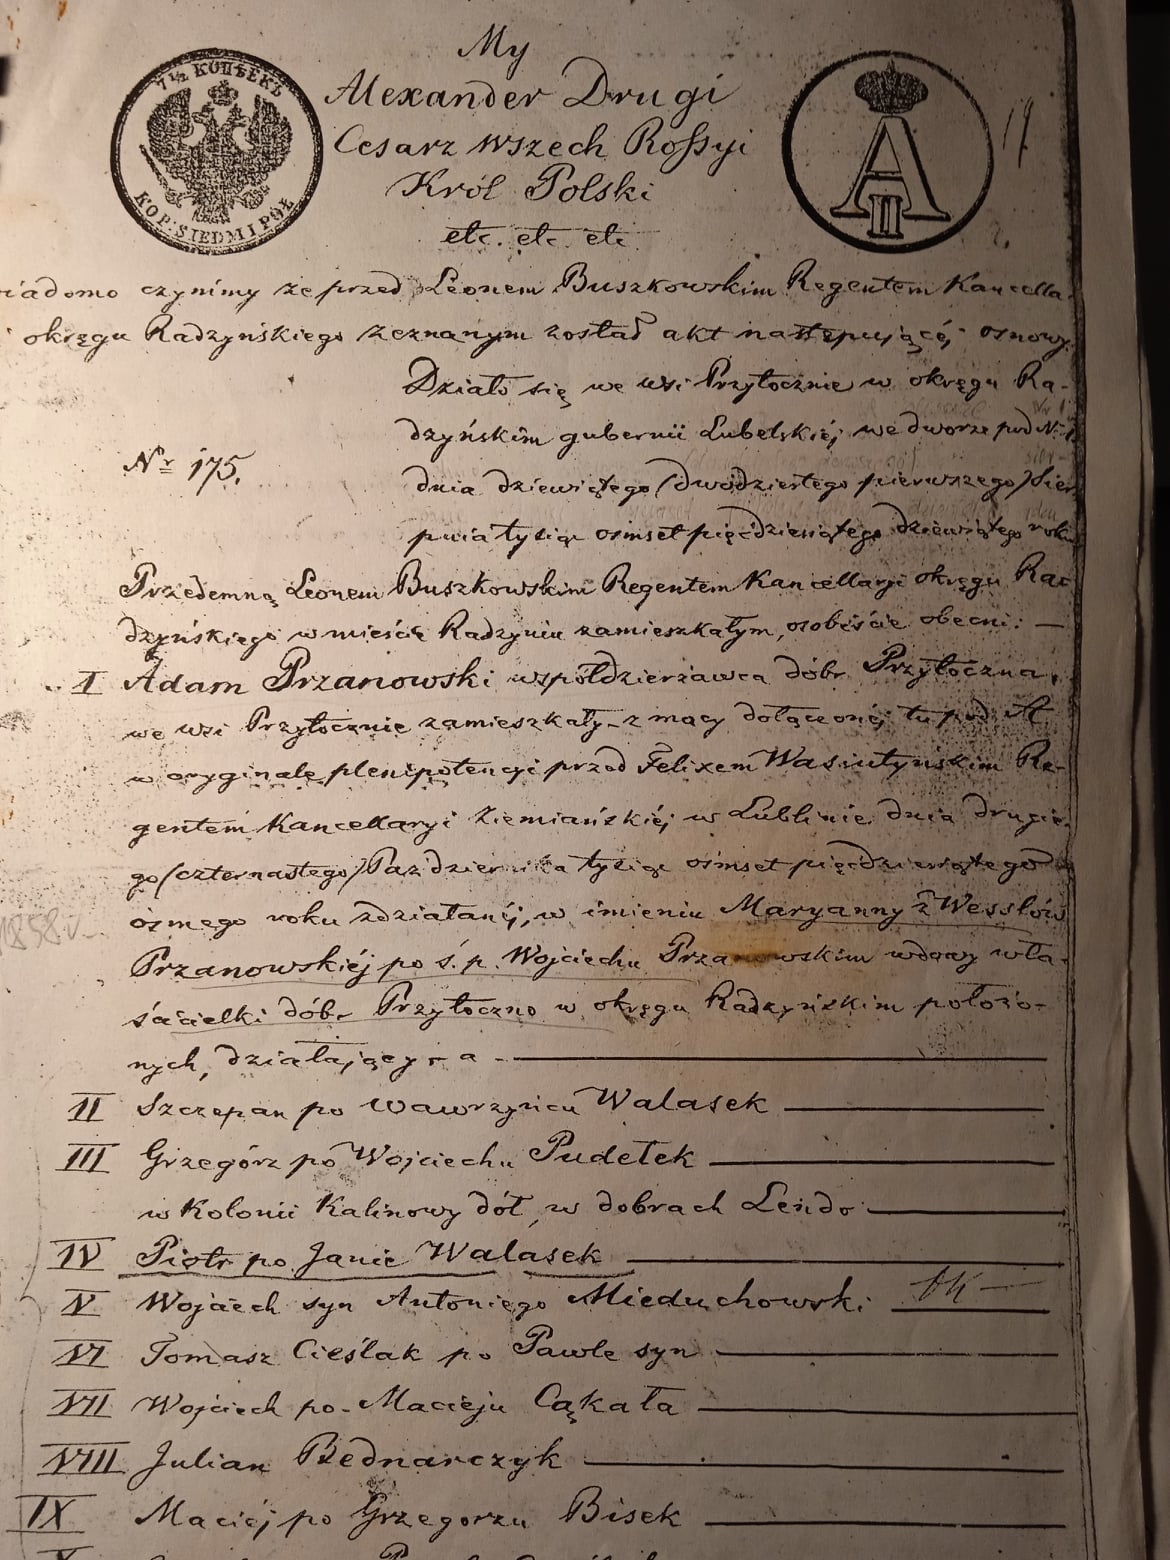 My
7½ КОПѢЕКЪ
KOP: SIEDM I PÓŁ
Alexander Drugi
Cesarz wszech Rossyi
Król Polski
etc. etc. etc.
A II
17
iadomo czynimy że przed Leonem Buszkowskim Regentem Kancella-
i okręgu Radzyńskiego zeznanym został akt następującéj osnowy
Działo się we wsi Przytocznie w okręgu Ra-
dzyńskim gubernii Lubelskiéj we dworze pod Nr 1
Nr 175.
dnia dziewiątego (dwudziestego pierwszego) Sier
pnia tysiąc ośmset pięćdziesiątego dziewiątego roku
Przedemną Leonem Buszkowskim Regentem Kancellaryi okręgu Ra
dzyńskiego w mieście Radzyniu zamieszkałym, osobiście obecni:
I Adam Przanowski współdzierżawca dóbr Przytoczna,
we wsi Przytocznie zamieszkały z mocy dołączonéj tu pod A
w oryginale plenipotencyi przed Felixem Wasiutyńskim Re-
gentem Kancellaryi Ziemiańskiéj w Lublinie dnia drugie-
go (czternastego) Października tysiąc ośmset pięćdziesiątego
ósmego roku zdziałanéj, w imieniu Maryanny z Wessłów
1858 r.
Przanowskiéj po ś. p. Wojciechu Przanowskim wdowy wła-
ścicielki dóbr Przytoczno w okręgu Radzyńskim położo-
nych, działający - a -
II Szczepan po Wawrzyńcu Walasek
III Grzegórz po Wojciechu Pudełek
w Kolonii Kalinowy dół, w dobrach Lendo
IV Piotr po Janie Walasek
V Wojciech syn Antoniego Mieduchowski
VI Tomasz Cieślak po Pawle syn
VII Wojciech po Macieju Cąkała
VIII Julian Bednarczyk
IX Maciéj po Grzegorzu Bisek